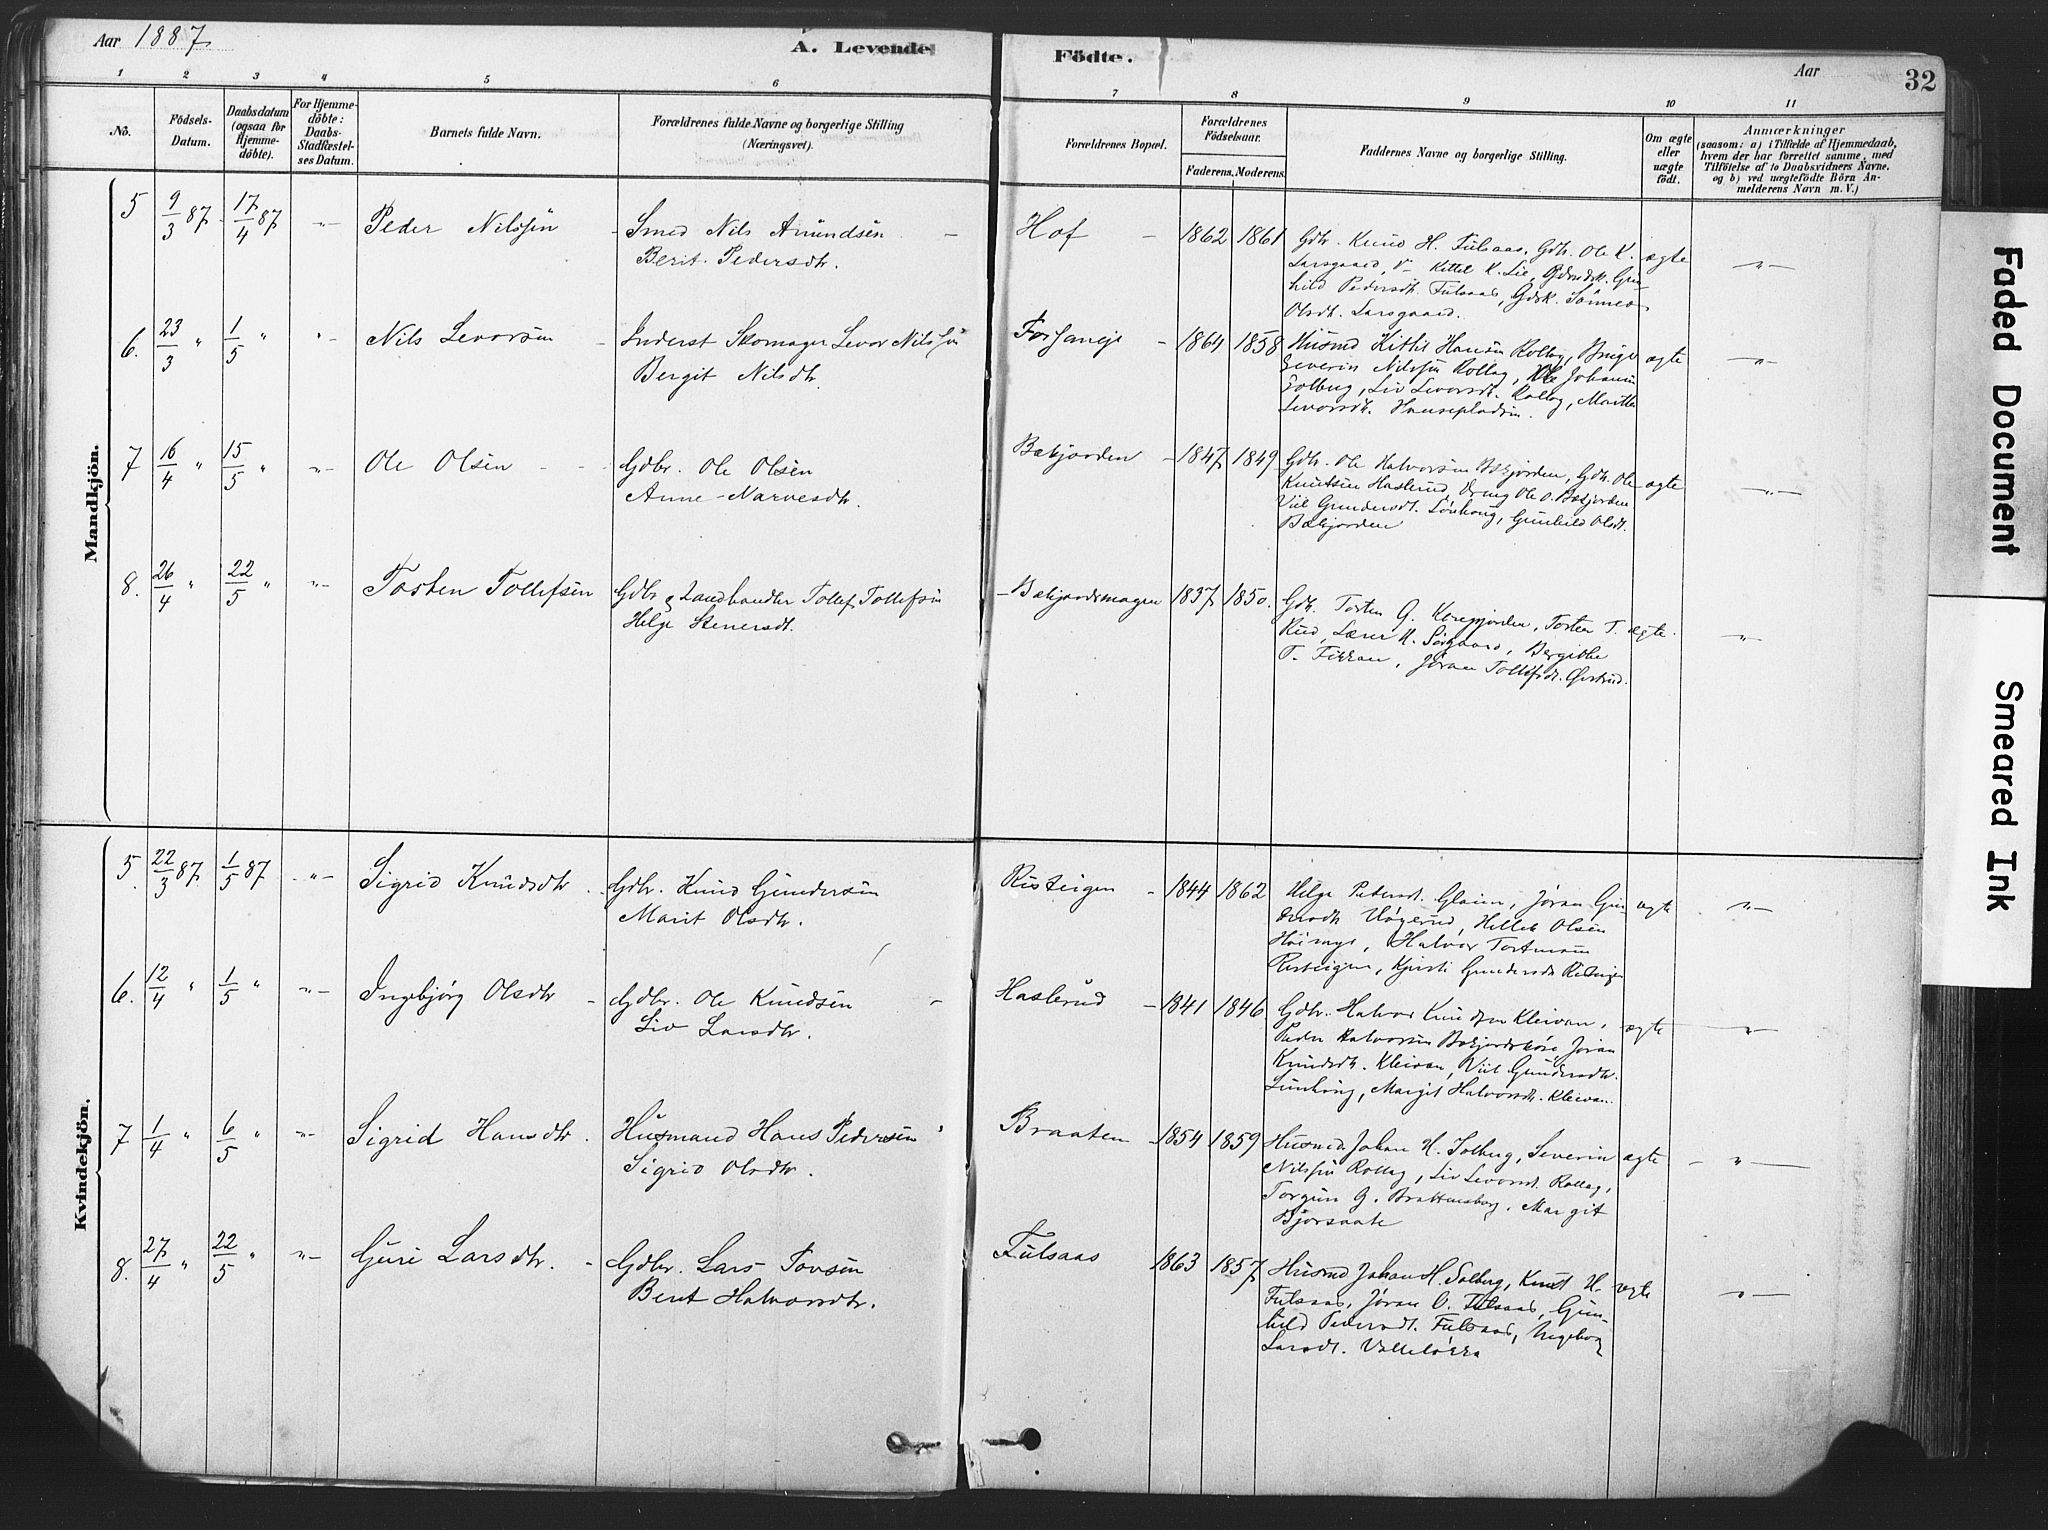 Aar 1887
A. Levende
Födte.
Aar
32
1 2 3 4 5 6 7 8 9 10 11
No.
Födsels-
Datum.
Daabsdatum
(ogsaa for
Hjemme-
döbte).
For Hjemme-
döbte:
Daabs-
Stadfæstel-
ses Datum.
Barnets fulde Navn.
Forældrenes fulde Navne og borgerlige Stilling
(Næringsvei).
Forældrenes Bopæl.
Forældrenes
Födselsaar.
Faderens. Moderens.
Faddernes Navne og borgerlige Stilling.
Om ægte
eller
uægte
födt.
Anmærkninger
(saasom: a) i Tilfælde af Hjemmedaab,
hvem der har forrettet samme, med
Tilföielse af to Daabsvidners Navne.
og b) ved uægtefödte Börn An-
melderens Navn m. V.)
Mandkjön.
5 9/3 87 17/4 87 -"- Peder Nilssön - Smed Nils Amundsén
Berit Pedersdtr.
Hof - 1862 1861
Gdbr. Knud H. Fulsaas, Gdbr. Ole K.
Larsgaard, Kittel K. Lie, Gun-
hild Pedersdtr. Fulsaas, Gdsk.
Olsdt. Larsgaard.
ægte -"-
6. 23/3 " 1/5 " " Nils Levorsen - Inderst Skomager Levor Nilssön
Bergit Nilsdtr.
1864 1858
Husmd Kittil Hansen Rollag,
Severin Nilssen Rollag, Ole Johansen
Solberg, Liv Levorsdt. Rollag,
Levorsdtr.
ægte -"-
7 16/4 " 15/5 " -"- Ole Olsen - - Gdbr. Ole Olsen
Anne Narvesdtr.
Bækjorden - 1847 1849
Gdbr. Ole Halvorsen Bækjorden, Gdbr. Ole
Knutsen Haslerud, Ole O. Bækjorden
Gundersdt. Gunhild Olsdt.
Bækjorden
ægte -"-
8. 26/4 " 22/5 " -"- Tosten Tollefsen Gdbr og Landhandler Tollef Tollefsen
Helge Stenersdt.
1837 1850.
Gdbr. Tosten G. Tosten T.
Rud, Lærer H. Sørgaard, Bergithe
T. Jöran Tollefsdt.
ægte. -"-
Kvindekjön.
5. 22/3 87. 1/5 87 -"- Sigrid Knudsdtr. Gdbr. Knud Gundersen
Marit Olsdtr.
Risteigen - 1844 1862
Helge Pedersdt. Jöran Gun-
dersdtr. Hellek Olsen
Halvor
Risteigen, Kjersti Gundersdtr Risteigen
ægte -"-
6. 12/4 " 1/5 " -"- Ingebjörg Olsdtr - Gdbr. Ole Knudsen -
Liv Larsdtr.
Haslerud - 1841 1846
Gdbr. Halvor Knudsen Kleivan,
Peder Halvorsen Jöran
Knudsdtr. Kleivan, Gundersdtr.
Margit Halvorsdt. Kleivan.
ægte "
7 1/4 " 6/5 " -"- Sigrid Hansdtr. Husmand Hans Pedersen
Sigrid Olsdtr.
Braaten - 1854 1859
Husmd Johan H. Solberg, Severin
Nilssen Rollag, Liv Levorsdt. Rollag,
Torgun G. Margit
ægte - -"-
8. 27/4 " 22/5 " -"- Guri Larsdtr. - Gdbr. Lars Tovsen
Berit Halvorsdtr.
Fulsaas 1863 1857
Husmd Johan H. Solberg, Knut H.
Fulsaas, Jöran O. Fulsaas, Gun-
hild Pedersdt. Fulsaas, Ingeborg
Larsdt.
ægte -"-
Faded Document
Smeared Ink